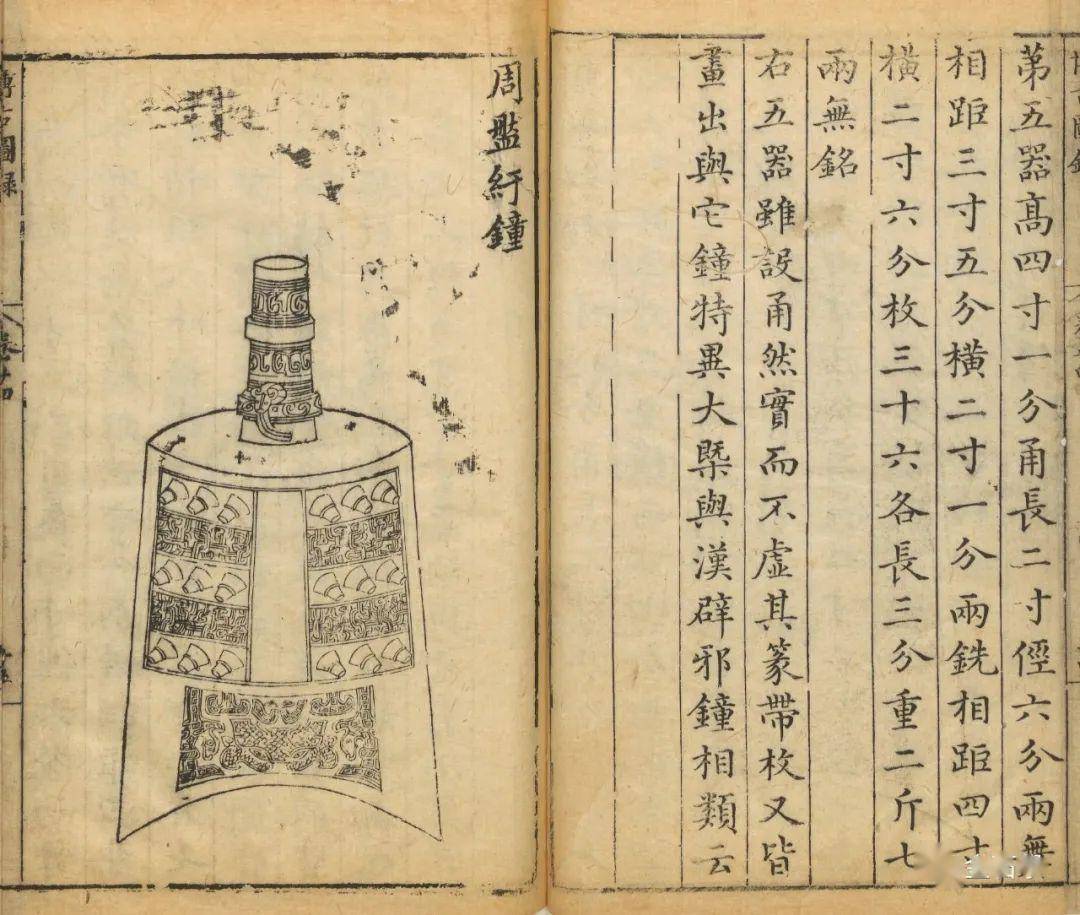 博古圖錄
第五器髙四寸一分甬長二寸俓六分兩無
相距三寸五分橫二寸一分兩銑相距四寸
橫二寸六分枚三十六各長三分重二斤七
兩無銘
右五器雖設甬然實而不虛其篆帶枚又皆
畫出與它鐘特異大槩與漢辟邪鐘相類云
周紆鐘
博古圖録